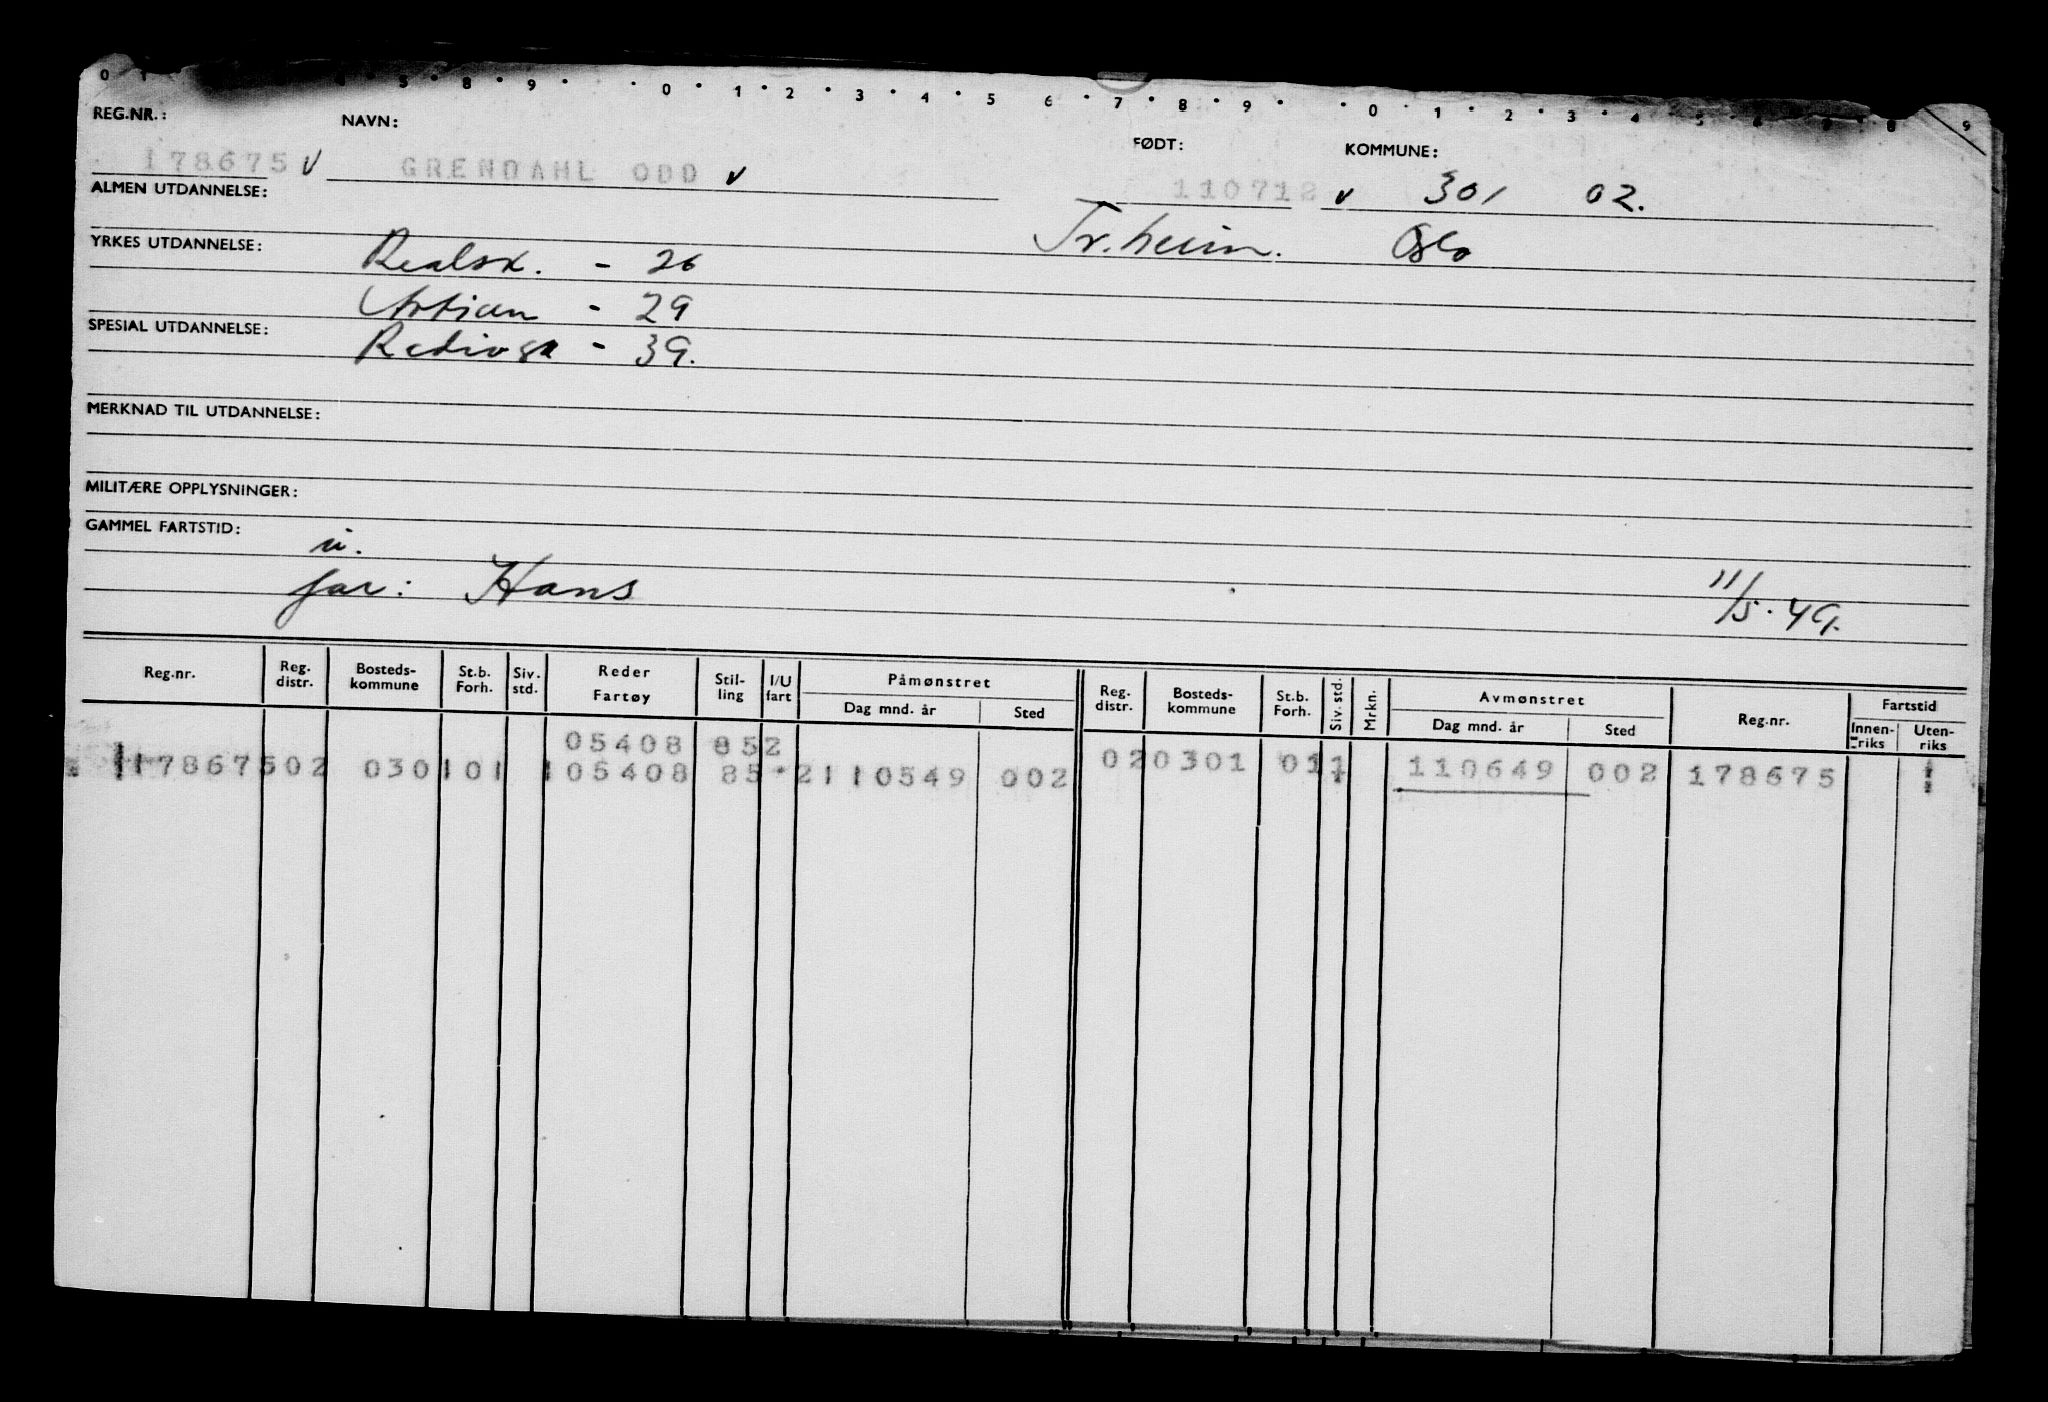 0 1 5 8 9 0 1 2 3 4 5 6 7 8 9 0 1 2 3 4 5 6 7 8 9
REG.NR.: NAVN: FØDT: KOMMUNE:
178675 √ GRENDAHL ODD √ 110712 √ 301 02.
ALMEN UTDANNELSE: Tr.heim. Oslo
YRKES UTDANNELSE: Realsk. - 26
Artian - 29
SPESIAL UTDANNELSE: Radiosk - 39.
MERKNAD TIL UTDANNELSE:
MILITÆRE OPPLYSNINGER:
GAMMEL FARTSTID: u.
far: Hans 11/5.49.
Reg.nr. Reg. distr. Bosteds-kommune St.b. Forh. Siv. std. Reder Fartøy Stil-ling I/U fart Påmønstret Dag mnd. år Sted Reg. distr. Bosteds-kommune St.b. Forh. Siv. std. Mrkn. Avmønstret Dag mnd. år Sted Reg.nr. Fartstid Innen-riks Uten-riks
05408 852
178675 02 0301 01 1 05408 85 2 110549 002 02 0301 01 1 110649 002 178675 1